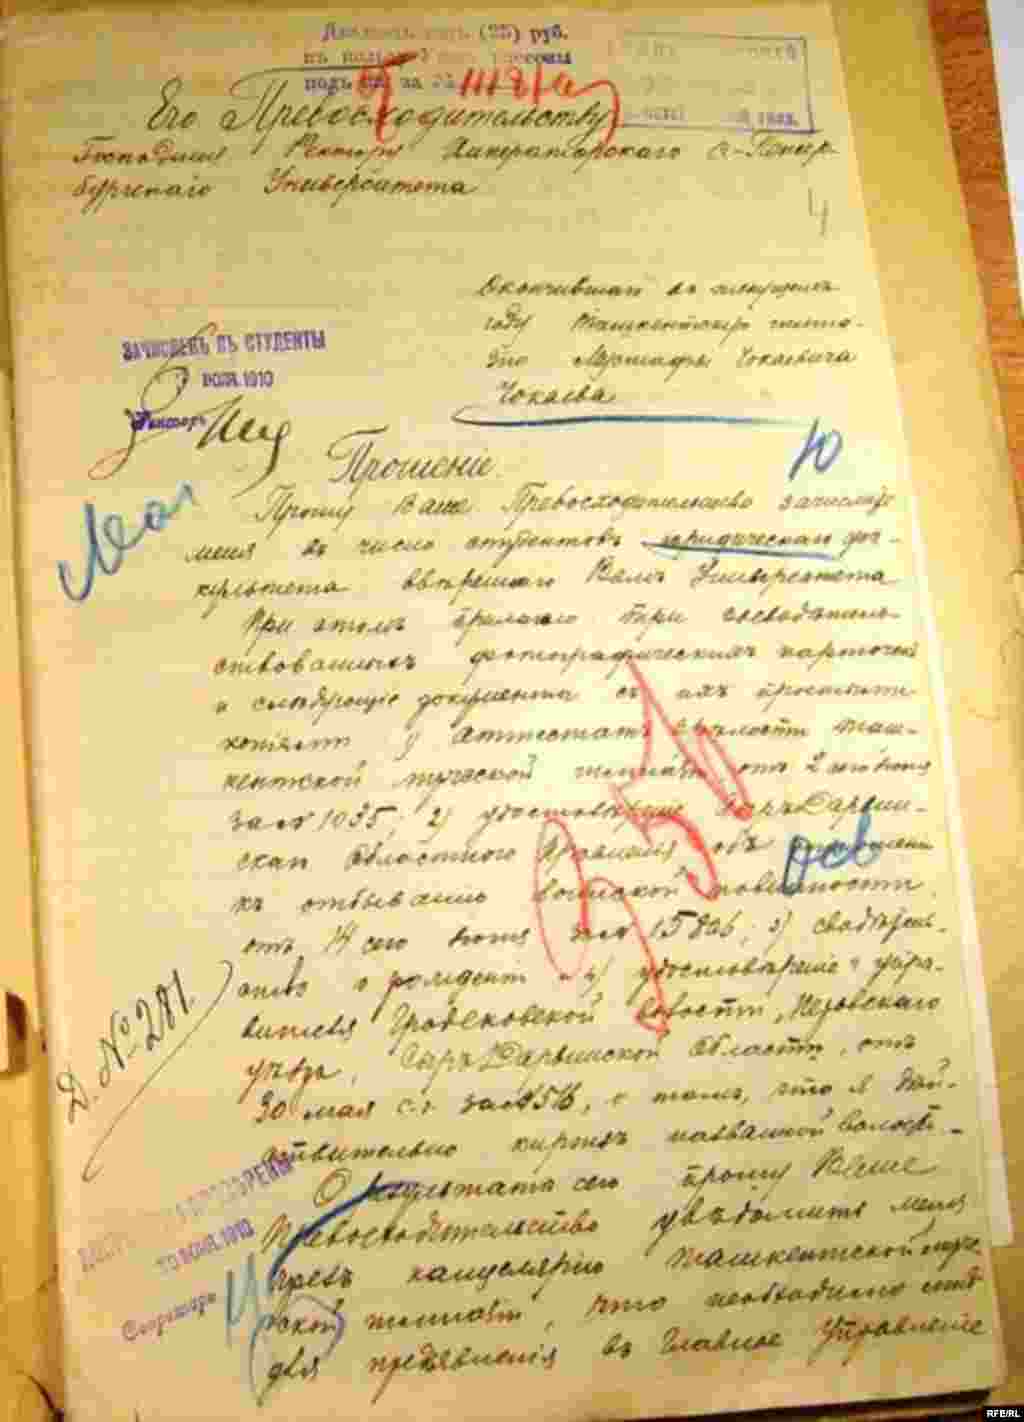 Двадцать пять (25) руб.
за
Его Превосходительству
Господину Ректору Императорскаго С-Петер-
бургскаго Университета
4
Окончившаго въ текущемъ
году Ташкентскую гимна-
зію Мустафы Чокаевича
Чокаева
ЗАЧИСЛЕНЪ ВЪ СТУДЕНТЫ
ІЮЛЯ 1910
Ректоръ
10
Прошеніе.
Прошу Ваше Превосходительство зачислить
меня въ число студентовъ юридическаго фа-
культета ввѣреннаго Вамъ Университета
При этомъ прилагаю три засвидѣтель-
ствованныхъ фотографическихъ карточки
и слѣдующіе документы съ ихъ
копіями 1) Аттестатъ зрѣлости Таш-
кентской мужской гимназіи отъ 2 сего іюня
за № 1035; 2) удостовѣреніе Сыръ-Дарьин-
скаго Областного Правленія объ отношеніи
къ отбыванію воинской повинности
отъ 14 сего іюня за № 15826; 3) свидѣтель-
ство о рожденіи и 4) удостовѣреніе упра-
вителя Гродековской волости, Перовскаго
уѣзда, Сыръ-Дарьинской Области, отъ
30 мая с.г. за № 456, о томъ, что я дѣй-
ствительно киргизъ названной волости.
О результатѣ сего прошу Ваше
Превосходительство увѣдомить меня
чрезъ канцелярію Ташкентской муж-
ской гимназіи, что необходимо мнѣ
для предъявленія въ Главное Управленіе
осв
Д. № 281.
10 ІЮЛЯ 1910
Секретарь
RFE/RL